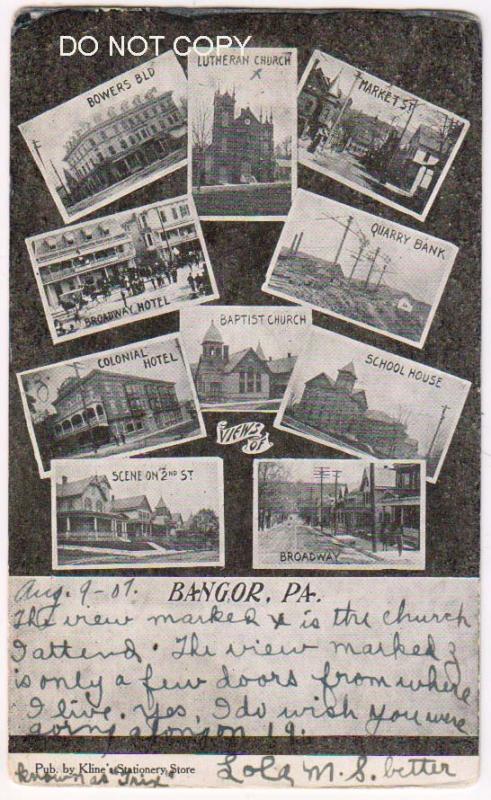 DO NOT COPY
BOWERS BLD
LUTHERAN CHURCH
x
MARKET ST
BROADWAY HOTEL
QUARRY BANK
BAPTIST CHURCH
COLONIAL HOTEL
SCHOOL HOUSE
VIEWS OF
SCENE ON 2ND ST
BROADWAY
Aug. 9-07. BANGOR, PA.
The view marked x is the church
I attend. The view marked z
is only a few doors from where
I live. Yes, I do wish you were
going along on 19.
Pub. by Kline's Stationery Store
Lola M. S. better
known as "Trix"